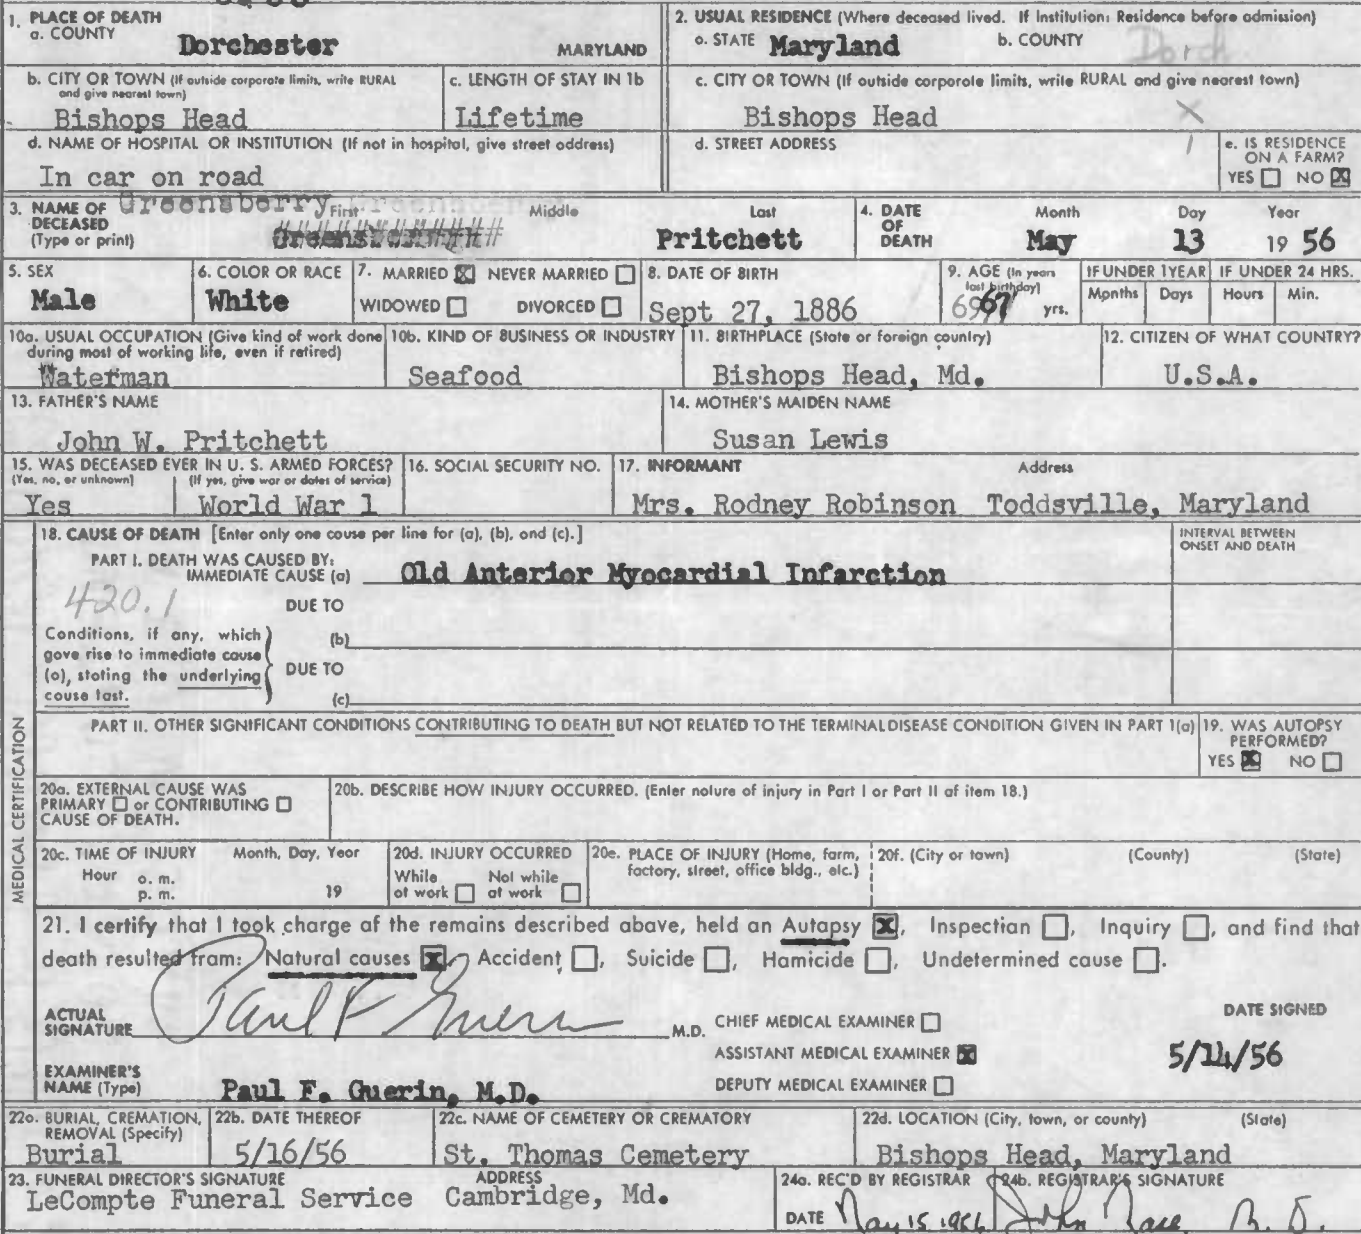 1. PLACE OF DEATH
a. COUNTY
Dorchester MARYLAND
2. USUAL RESIDENCE (Where deceased lived. If Institution: Residence before admission)
a. STATE Maryland b. COUNTY Dorch
b. CITY OR TOWN (If outside corporate limits, write RURAL and give nearest town)
Bishops Head
c. LENGTH OF STAY IN 1b
Lifetime
c. CITY OR TOWN (If outside corporate limits, write RURAL and give nearest town)
Bishops Head
d. NAME OF HOSPITAL OR INSTITUTION (If not in hospital, give street address)
In car on road
d. STREET ADDRESS
e. IS RESIDENCE ON A FARM?
YES NO X
3. NAME OF DECEASED (Type or print)
First Middle Last
Greensberry Pritchett
4. DATE OF DEATH
Month Day Year
May 13 19 56
5. SEX
Male
6. COLOR OR RACE
White
7. MARRIED X NEVER MARRIED
WIDOWED DIVORCED
8. DATE OF BIRTH
Sept 27, 1886
9. AGE (In years last birthday)
69 yrs.
IF UNDER 1 YEAR
Months Days
IF UNDER 24 HRS.
Hours Min.
10a. USUAL OCCUPATION (Give kind of work done during most of working life, even if retired)
Waterman
10b. KIND OF BUSINESS OR INDUSTRY
Seafood
11. BIRTHPLACE (State or foreign country)
Bishops Head, Md.
12. CITIZEN OF WHAT COUNTRY?
U.S.A.
13. FATHER'S NAME
John W. Pritchett
14. MOTHER'S MAIDEN NAME
Susan Lewis
15. WAS DECEASED EVER IN U. S. ARMED FORCES?
(Yes, no, or unknown) (If yes, give war or dates of service)
Yes World War 1
16. SOCIAL SECURITY NO.
17. INFORMANT Address
Mrs. Rodney Robinson Toddsville, Maryland
MEDICAL CERTIFICATION
18. CAUSE OF DEATH [Enter only one cause per line for (a), (b), and (c).]
INTERVAL BETWEEN ONSET AND DEATH
PART I. DEATH WAS CAUSED BY:
IMMEDIATE CAUSE (a) Old Anterior Myocardial Infarction
420.1
DUE TO
(b)
DUE TO
(c)
Conditions, if any, which gave rise to immediate cause (a), stating the underlying cause last.
PART II. OTHER SIGNIFICANT CONDITIONS CONTRIBUTING TO DEATH BUT NOT RELATED TO THE TERMINAL DISEASE CONDITION GIVEN IN PART 1(a)
19. WAS AUTOPSY PERFORMED?
YES X NO
20a. EXTERNAL CAUSE WAS PRIMARY or CONTRIBUTING CAUSE OF DEATH.
20b. DESCRIBE HOW INJURY OCCURRED. (Enter nature of injury in Part I or Part II of item 18.)
20c. TIME OF INJURY Month, Day, Year
Hour a. m.
p. m. 19
20d. INJURY OCCURRED
While at work Not while at work
20e. PLACE OF INJURY (Home, farm, factory, street, office bldg., etc.)
20f. (City or town) (County) (State)
21. I certify that I took charge of the remains described above, held an Autopsy X, Inspection , Inquiry , and find that
death resulted from: Natural causes X, Accident , Suicide , Homicide , Undetermined cause .
ACTUAL SIGNATURE Paul F Guerin M.D.
CHIEF MEDICAL EXAMINER
ASSISTANT MEDICAL EXAMINER X
DEPUTY MEDICAL EXAMINER
DATE SIGNED
5/14/56
EXAMINER'S NAME (Type) Paul F. Guerin, M.D.
22a. BURIAL, CREMATION, REMOVAL (Specify)
Burial
22b. DATE THEREOF
5/16/56
22c. NAME OF CEMETERY OR CREMATORY
St. Thomas Cemetery
22d. LOCATION (City, town, or county) (State)
Bishops Head, Maryland
23. FUNERAL DIRECTOR'S SIGNATURE ADDRESS
LeCompte Funeral Service Cambridge, Md.
24a. REC'D BY REGISTRAR
DATE May 15 1956
24b. REGISTRAR'S SIGNATURE
John